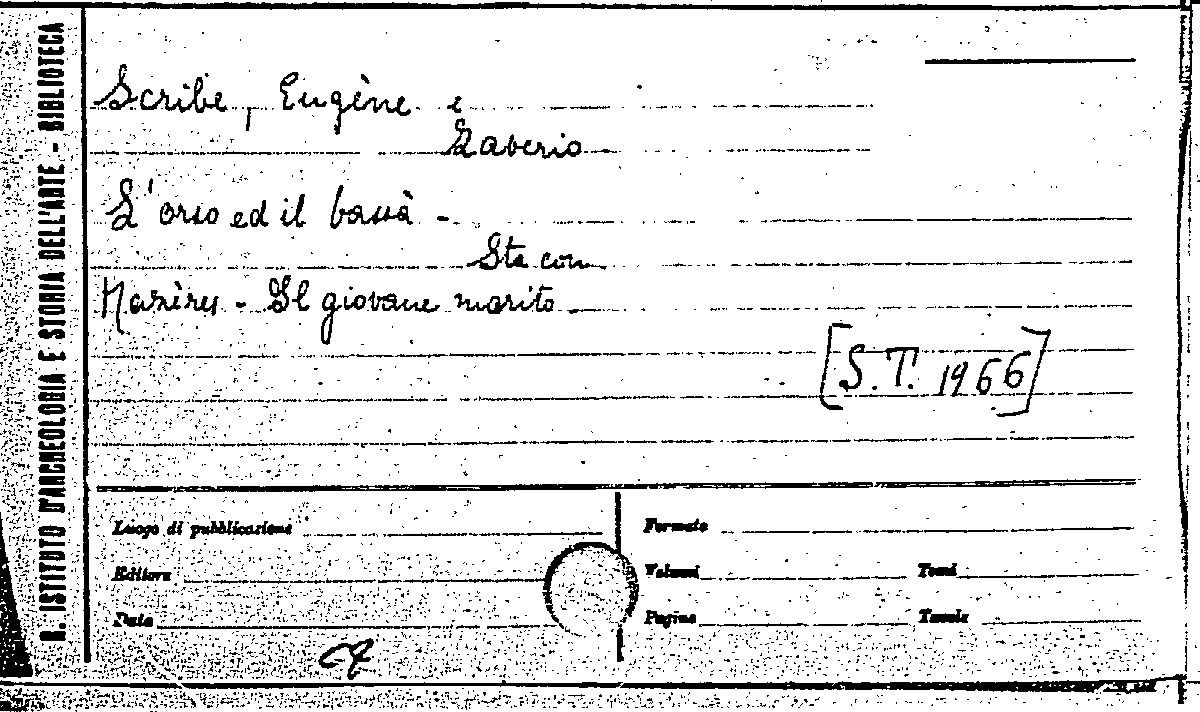 R. ISTITUTO D'ARCHEOLOGIA E STORIA DELL'ARTE - BIBLIOTECA
Scribe, Eugène e
Saverio -
L'orso ed il bassà -
Sta con
Mazères - Il giovane marito -
[S. T. 1966]
Luogo di pubblicazione
Formato
Editore
Volumi
Tomi
Data
Pagine
Tavole